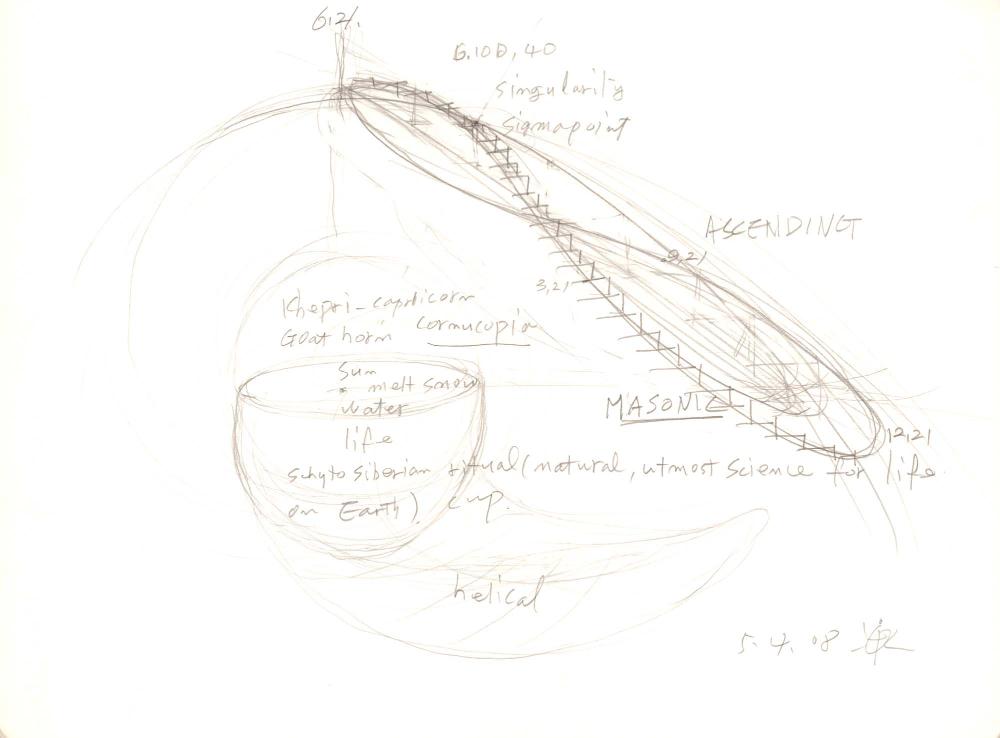 6.21.
6.10D, 40
singularity
sigmapoint
ASCENDING
9,21
3,21
Khepri-capricorn
Goat horn cornucopia
Sun
melt snow
water
MASONIC
12,21
life
schyto siberian ritual (natural, utmost science for life
on Earth). cup.
helical
5. 4. 08